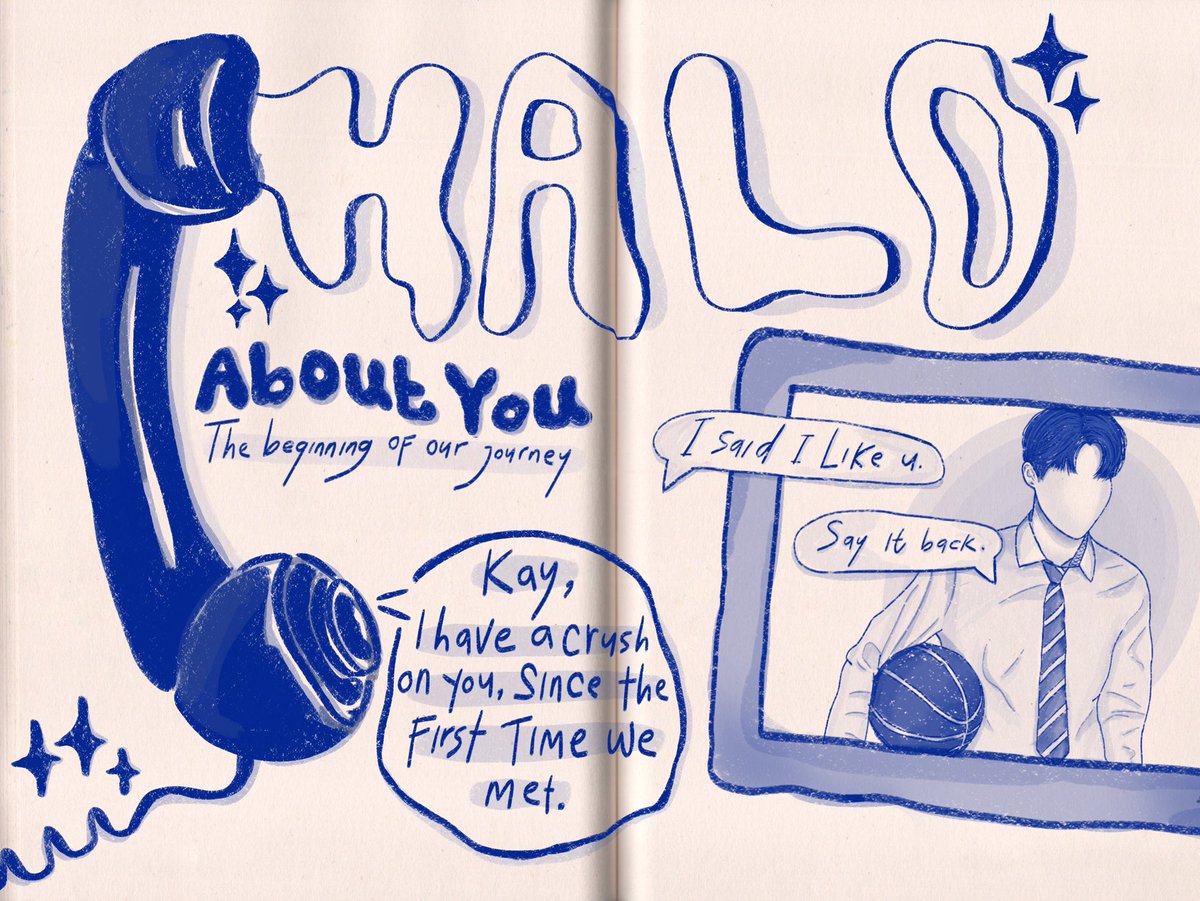 HALO
About You
The beginning of our journey
I said I Like u.
Say it back.
Kay,
I have a crush
on you, Since the
First Time We
met.